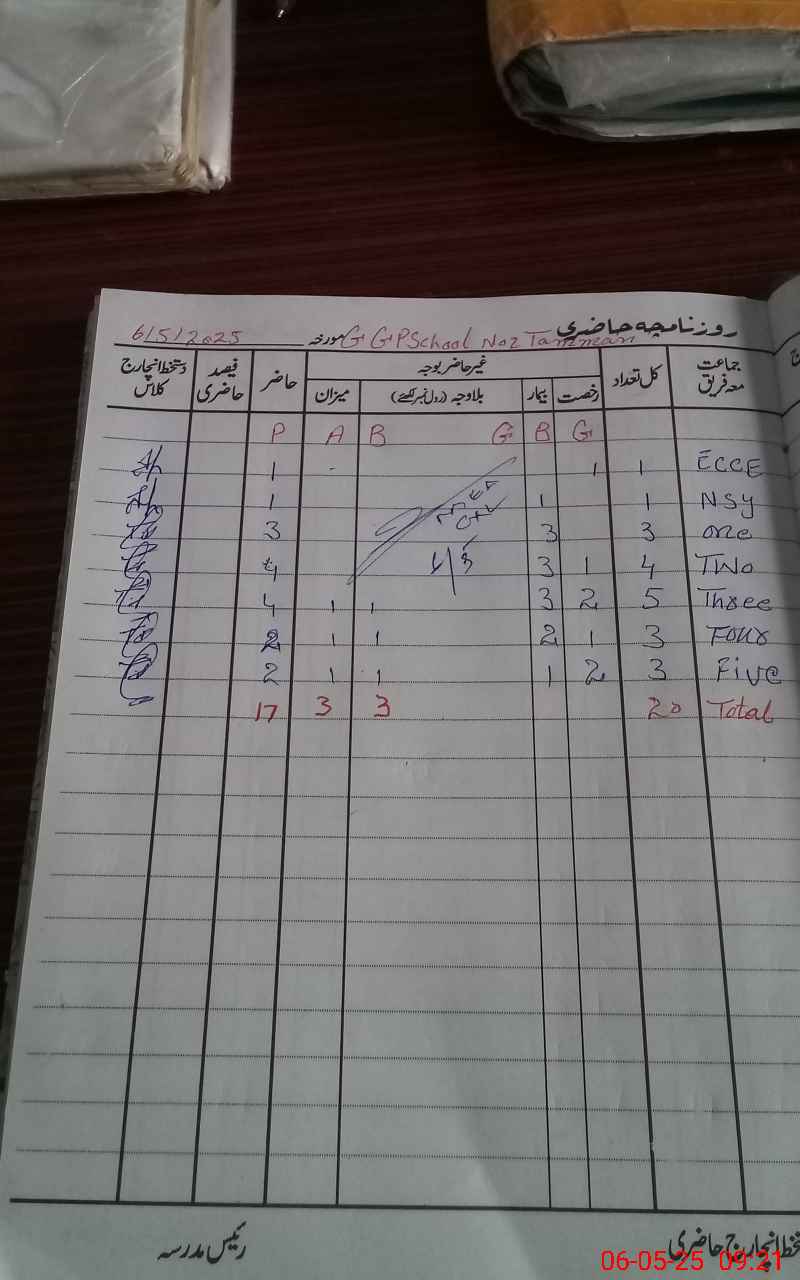 روزنامچہ حاضری G GPSchool No2 Tamman مورخہ 6/5/2025
جماعت معہ فریق کل تعداد غیر حاضر بوجہ حاضر فیصد حاضری دستخط انچارج کلاس
رخصت بیمار بلاوجہ (رول نمبر لکھئے) میزان
G B G B A P
ECCE 1 1 - 1
NSy 1 1 1
one 3 3 3
Two 4 1 3 4
Three 5 2 3 1 1 4
Four 3 1 2 1 1 2
Five 3 2 1 1 1 2
Total 20 3 3 17
6/5
دستخط انچارج حاضری رئیس مدرسہ
06-05-25 09:21